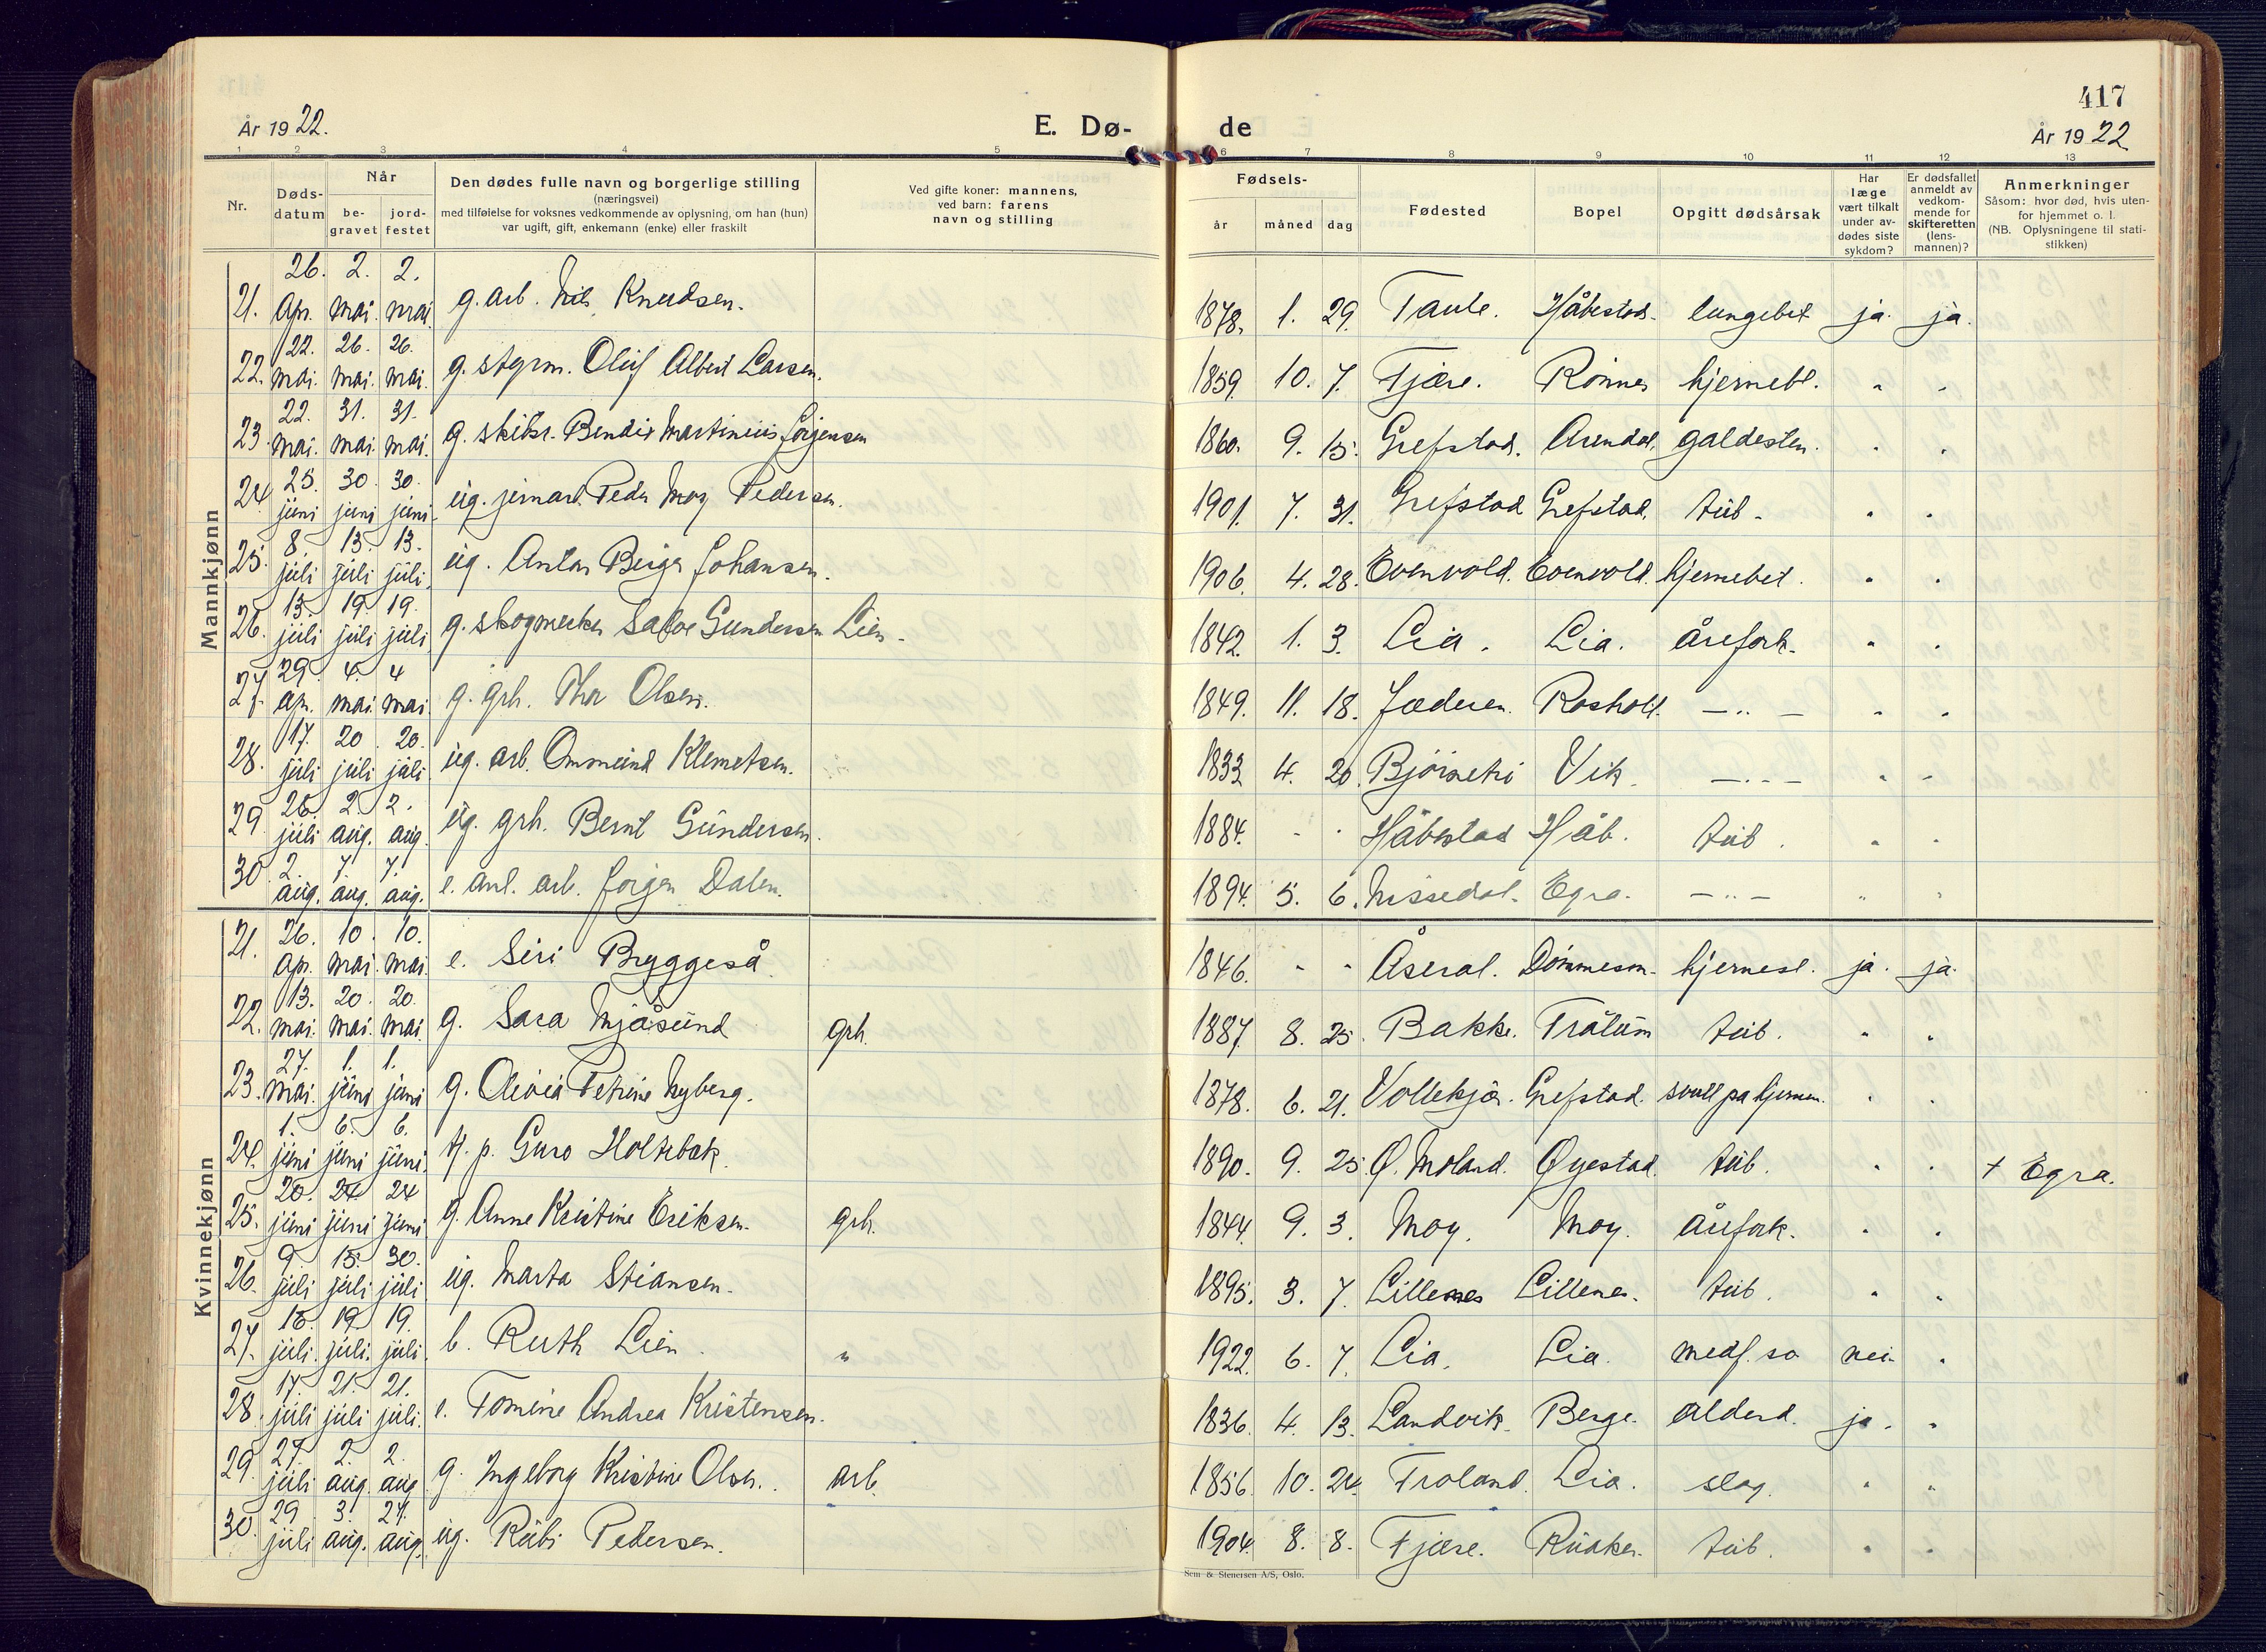 417
År 1922.
E. Dø-
de
År 1922
1 2 3 4 5 6 7 8 9 10 11 12 13
Nr.
Døds-
datum
Når
be-
gravet
jord-
festet
Den dødes fulle navn og borgerlige stilling
(næringsvei)
med tilføielse for voksnes vedkommende av oplysning, om han (hun)
var ugift, gift, enkemann (enke) eller fraskilt
Ved gifte koner: mannens,
ved barn: farens
navn og stilling
Fødsels-
år måned dag
Fødested
Bopel
Opgitt dødsårsak
Har
læge
vært tilkalt
under av-
dødes siste
sykdom?
Er dødsfallet
anmeldt av
vedkom-
mende for
skifteretten
(lens-
mannen)?
Anmerkninger
Såsom: hvor død, hvis uten-
for hjemmet o. l.
(NB. Oplysningene til stati-
stikken)
Mannkjønn
21. 26. Apr. 2. mai. 2. mai. g. arb. Nils Knudsen. 1878. 1. 29. Håbestad. lungebet ja. ja.
22. 22. mai. 26. mai. 26. mai. g. stgrm. Oluf Albert Larsen. 1859. 10. 7. Fjære. Rønnes hjernebl. " "
23. 22. mai. 31. mai. 31. mai. g. skibsr. Martinius Jørgensen 1860. 9. 15. Grefstad. Arendal. galdesten. " "
24. 25. juni 30. juni 30. juni ug. jernarb. Peder Moy Pedersen. 1901. 7. 31. Grefstad Grefstad. tub. " "
25. 8. juli 13. juli 13. juli ug. Anton Birger Johansen. 1906. 4. 28. Evenvold. Evenvold. hjernebet. " "
26. 13. juli 19. juli 19. juli g. skogmerker Salve Gundersen Lien. 1842. 1. 3. Lia. Lia. årefork. " "
27. 29. Apr. 4. mai. 4 mai. g. grh. Thor Olsen. 1849. 11. 18. Jæderen. Rosholt. — " — " "
28. 17. juli 20. juli 20. juli ug. arb. Ommund Klemetsen. 1833 4. 20. Vik. — " — " "
29. juli 2. aug. 2. aug. ug. grh. Bernt Gundersen. 1884. - - Håbestad Håb. tub. " "
30. 2. aug. 7. aug. 7. aug. e. anl. arb. Jørgen Dalen. 1894. 5. 6. Nissedal. Egra. — " — " "
Kvinnekjønn
21. 26. Apr. 10. mai. 10. mai. e. Siri Bryggeså 1846. - - Åseral. Dømmesm. hjernesl. ja. ja.
22. 13. mai. 20. mai. 20. mai g. Sara Mjåsund grh. 1887. 8. 25. Bakke. Trålum tub. " "
23. 27. mai. 1. juni 1. juni g. Olivia Petrine Nyberg. 1878. 6. 21. Vollekjær. Grefstad. svull på hjernen. " "
24. 1. juni 6. juni 6. juni. Guro Holtebæk. 1890. 9. 25. Ø. Moland. Øyestad. tub. " " † Egra.
25. 20. juni 24. juni 24 juni g. Anne Kristine Eriksen. grh. 1844. 9. 3. Moy. Moy. årefork. " "
26. 9. juli 15. juli 30. juli ug. Marta Stiansen. 1895. 3. 7. Lillenes Lillenes. tub. " "
27. juli. 19. juli. 19. juli. b. Ruth Lien. " 1922. 6. 7. Lia. Lia. medf. sv nei. "
28. 17. juli 21. juli 21. juli. e. Tomine Andrea Kristensen. 1836. 4. 13. Landvik. Berge. alderd. ja. "
29. 27. juli 2. aug. 2. aug g. Ingeborg Kristine Olsen. arb. 1856. 10. 24. Froland. Lia. slag. " "
30. 29 juli 3. aug. 27. aug. ug. Rubi Pedersen. 1904. 8. 8. Fjære. tub. " "
Sem & Stenersen A/S, Oslo.